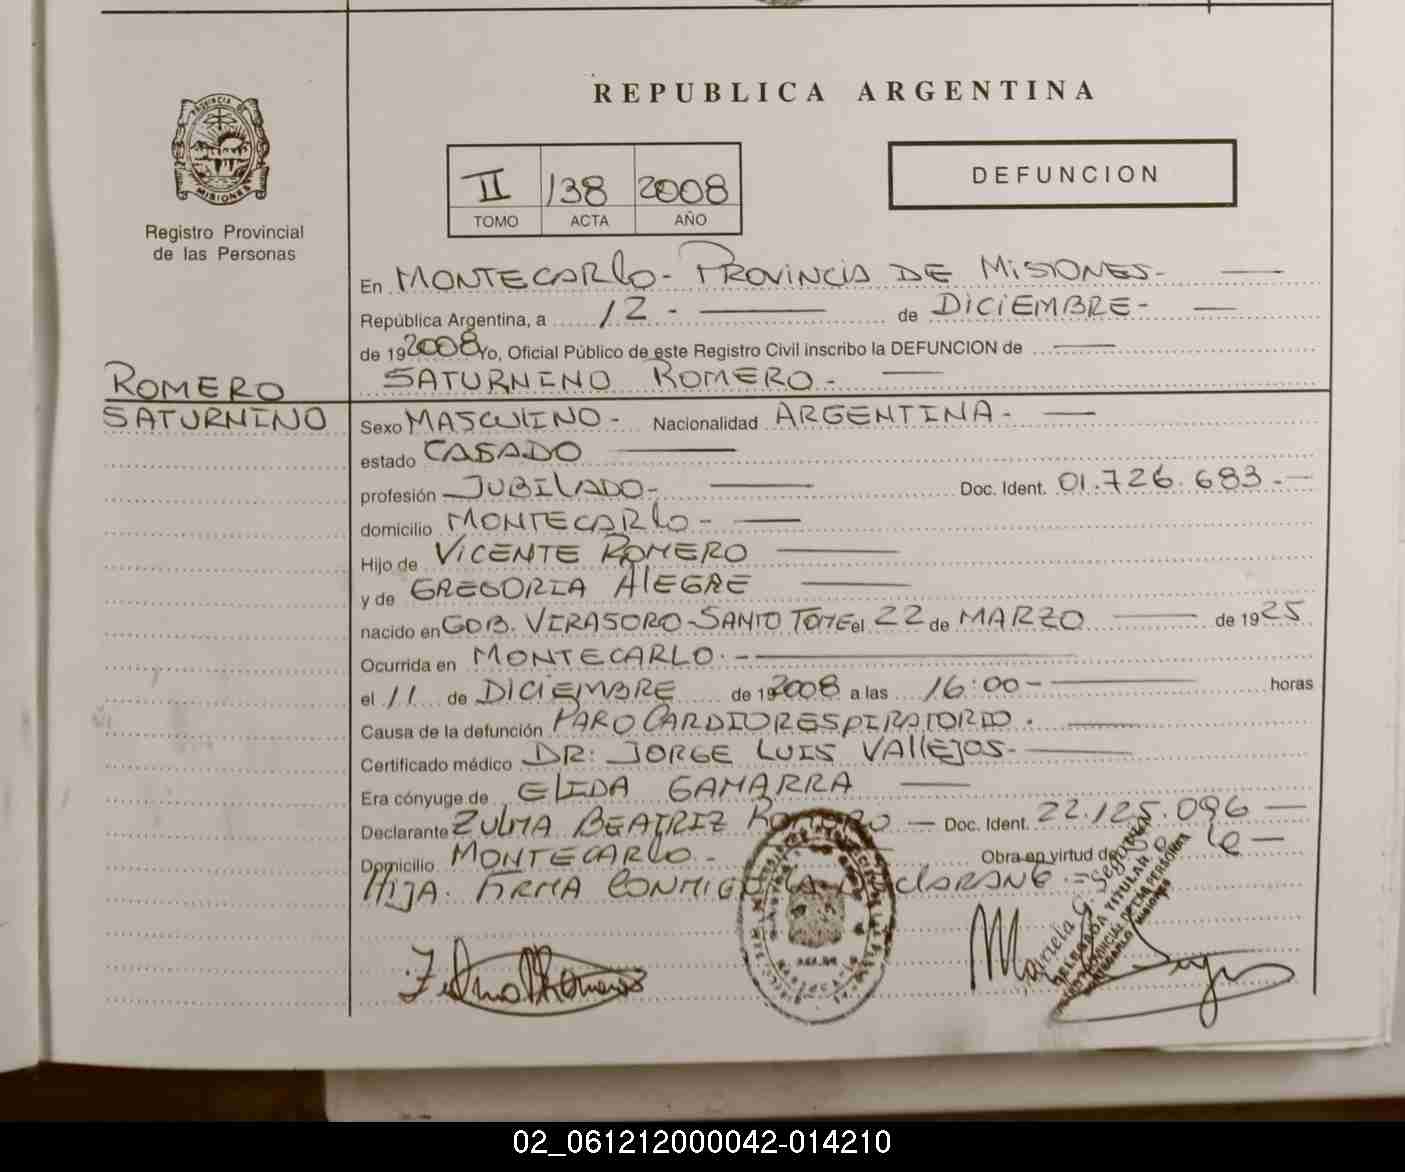 REPUBLICA ARGENTINA
PROVINCIA DE
MISIONES
Registro Provincial
de las Personas
II 138 2008
TOMO ACTA AÑO
DEFUNCION
En MONTECARLO- PROVINCIA DE MISIONES-
República Argentina, a 12 - de DICIEMBRE-
de 192008 Yo, Oficial Público de este Registro Civil inscribo la DEFUNCION de
SATURNINO ROMERO-
ROMERO
SATURNINO
Sexo MASCULINO- Nacionalidad ARGENTINA-
estado CASADO
profesión JUBILADO- Doc. Ident. 01.726.683.-
domicilio MONTECARLO-
Hijo de VICENTE ROMERO
y de GREGORIA ALEGRE
nacido en GOB. VIRASORO-SANTO TOME el 22 de MARZO de 1925
Ocurrida en MONTECARLO.-
el 11 de DICIEMBRE de 192008 a las 16:00- horas
Causa de la defunción PARO CARDIORESPIRATORIO.
Certificado médico DR: JORGE LUIS VALLEJOS-
Era cónyuge de ELIDA GAMARRA
Declarante ZULMA BEATRIZ ROMERO - Doc. Ident. 22.125.096
Domicilio MONTECARLO- Obra en virtud de
HIJA. FIRMA CONMIGO LA
Mariela G.
DELEGADA TITULAR
02_061212000042-014210